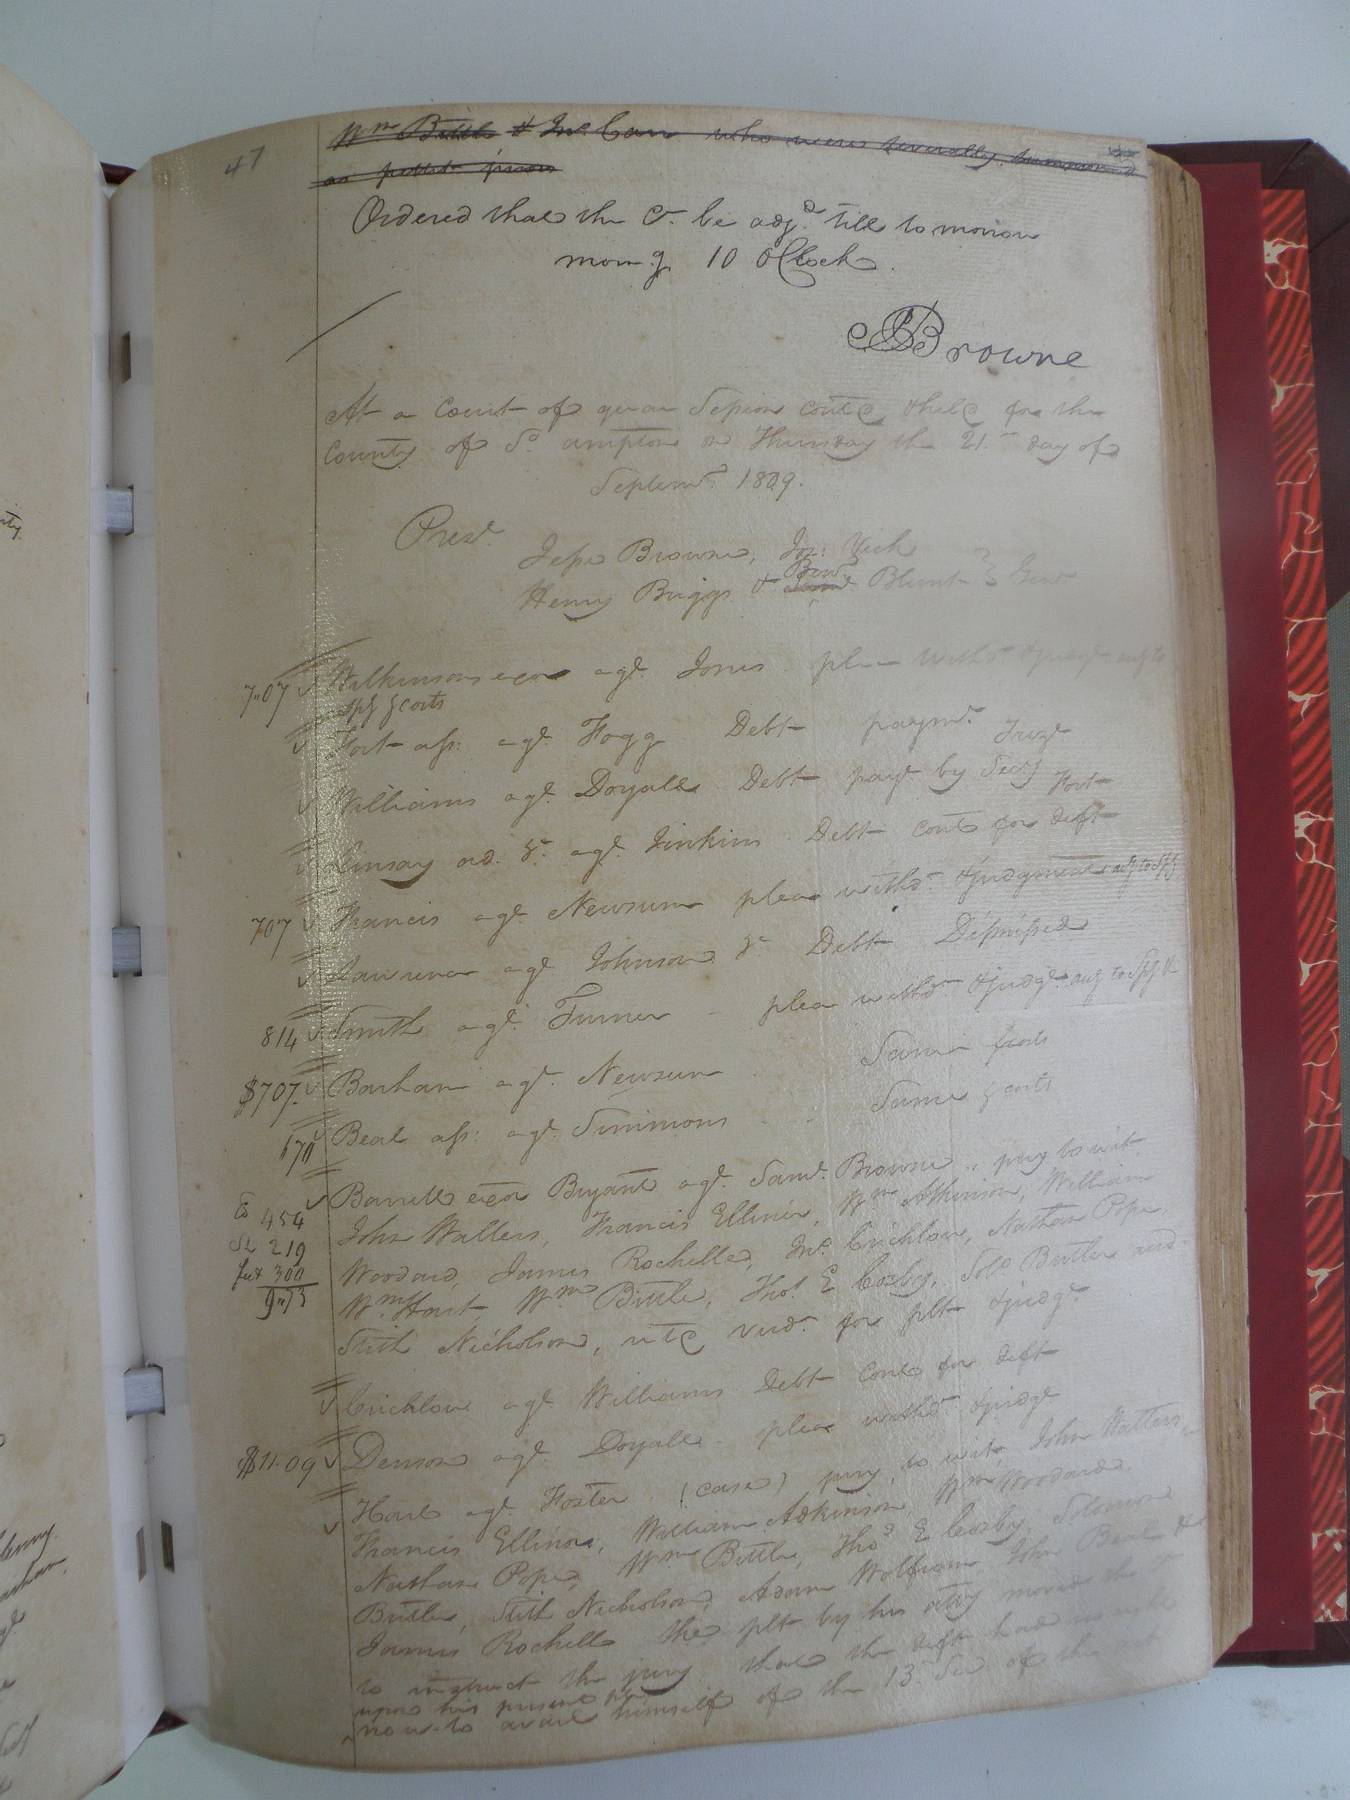 47
Wm Bittle & Jno. Carr who were severally summoned
as pettit jurors
Ordered that the Ct. be adjd. till to morrow
morng. 10 oClock.
JBrowne
At a Court of quar Session contd & held for the
County of So. ampton on Thursday the 21st day of
Septemr. 1809.
Prest.
Jesse Browne, Jos: Vick
Henry Briggs & Benj Blunt } Gent
7"07 Wilkinsons exor agt. Jones plea withdn & judgt
& costs
Fort ass: agt. Fogg Debt paymt.
Williams agt. Doyale Debt payt by Secy
Fort
Linsay ad. &c. agt. Jinkins Debt contd for deft
707 Francis agt. Newsum plea withdn & judgment
Lawrence agt. Johnson &c Debt Dismissed
814 Smith agt. Turner plea withdn & judgt
$707. Barham agt. Newsum Same & costs
670 Beal ass: agt. Simmons Same & costs
Barrett exor Bryant agt. Saml. Browne jury to wit.
454 John Watters, Francis Ellinor, Wm Atkinson, William
219 Woodard, James Rochelle, Jno. Crichlow, Nathan Pope,
300 Wm. Hart, Wm Bittle, Thos. E Cosby, Solo Butler and
9"73 Stith Nicholson, verdt. for plt & judgt
Crichlow agt Williams Debt Contd for deft
$11.09 Denson agt. Doyale plea withdn & judgt
Hart agt Foster (case) jury, to wit, John Watters,
Francis Ellinor, William Adkinson, Wm Woodard,
Nathan Pope, Wm Bittle, Thos E Cosby, Solomon
Butler, Stith Nicholson, Adam Wolfram, John Beal &
James Rochelle the plt by his atty moved the Ct
to instruct the jury that the deft had no right
upon his present plea
now to avail himself of the 13 Sec. of the